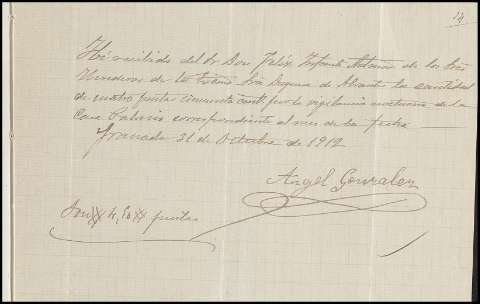 14
He recibido del Sr. Don Felix Infante de los Sres
Herederos de la Exma Sra Duquesa de Abrantes la cantidad
de cuatro pesetas cincuenta cents, por la vigilancia nocturna de la
Casa Palacio correspondiente al mes de la fecha
Granada 31 de Octubre de 1912
Angel Gonzalez
Son 4,50 pesetas